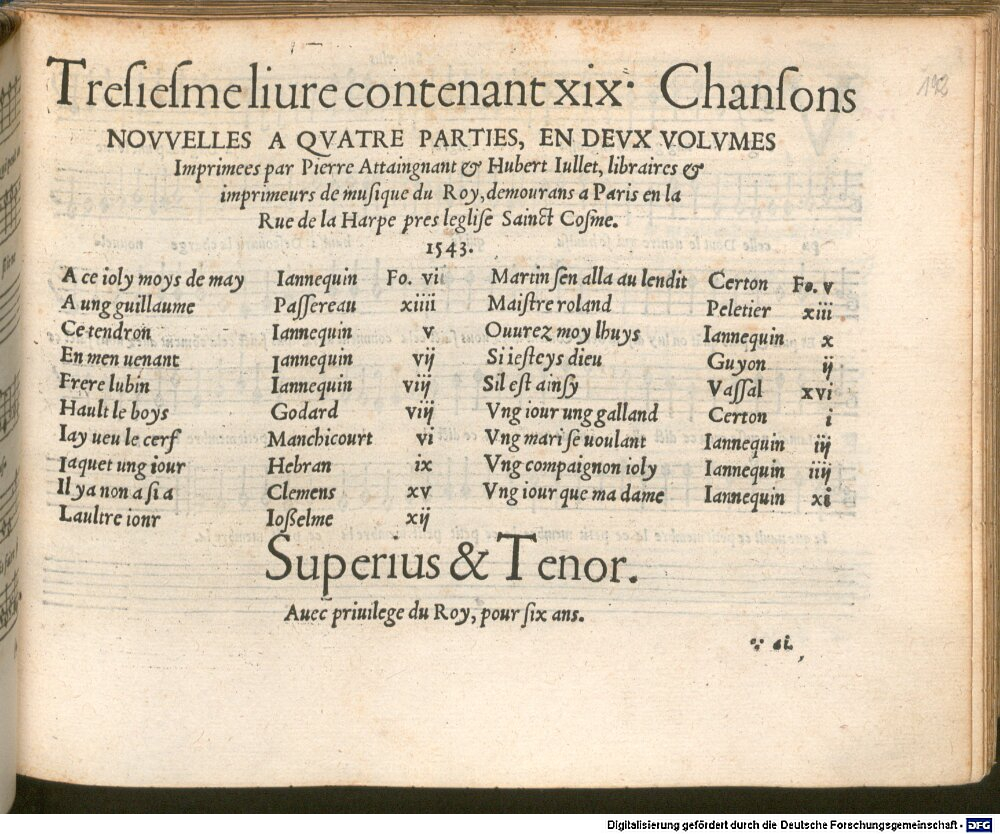 Treſieſme liure contenant xix. Chanſons
NOVVELLES A QVATRE PARTIES, EN DEVX VOLVMES
Imprimees par Pierre Attaingnant & Hubert Iullet, libraires &
imprimeurs de muſique du Roy, demourans a Paris en la
Rue de la Harpe pres legliſe Sainct Coſme.
1543.
A ce ioly moys de may Iannequin Fo. vii
A ung guillaume Paſſereau xiiii
Ce tendron Iannequin v
En men uenant Iannequin vij
Frere lubin Iannequin viij
Hault le boys Godard viij
Iay ueu le cerf Manchicourt vi
Iaquet ung iour Hebran ix
Il ya non a ſi a Clemens xv
Laultre ionr Ioßelme xij
Martin ſen alla au lendit Certon Fo. v
Maiſtre roland Peletier xiii
Ouurez moy lhuys Iannequin x
Si ieſteys dieu Guyon ij
Sil eſt ainſy Vaſſal xvi
Vng iour ung galland Certon i
Vng mari ſe uoulant Iannequin iij
Vng compaignon ioly Iannequin iiij
Vng iour que ma dame Iannequin xi
Superius & Tenor.
Auec priuilege du Roy, pour ſix ans.
192
Digitalisierung gefördert durch die Deutsche Forschungsgemeinschaft - DFG